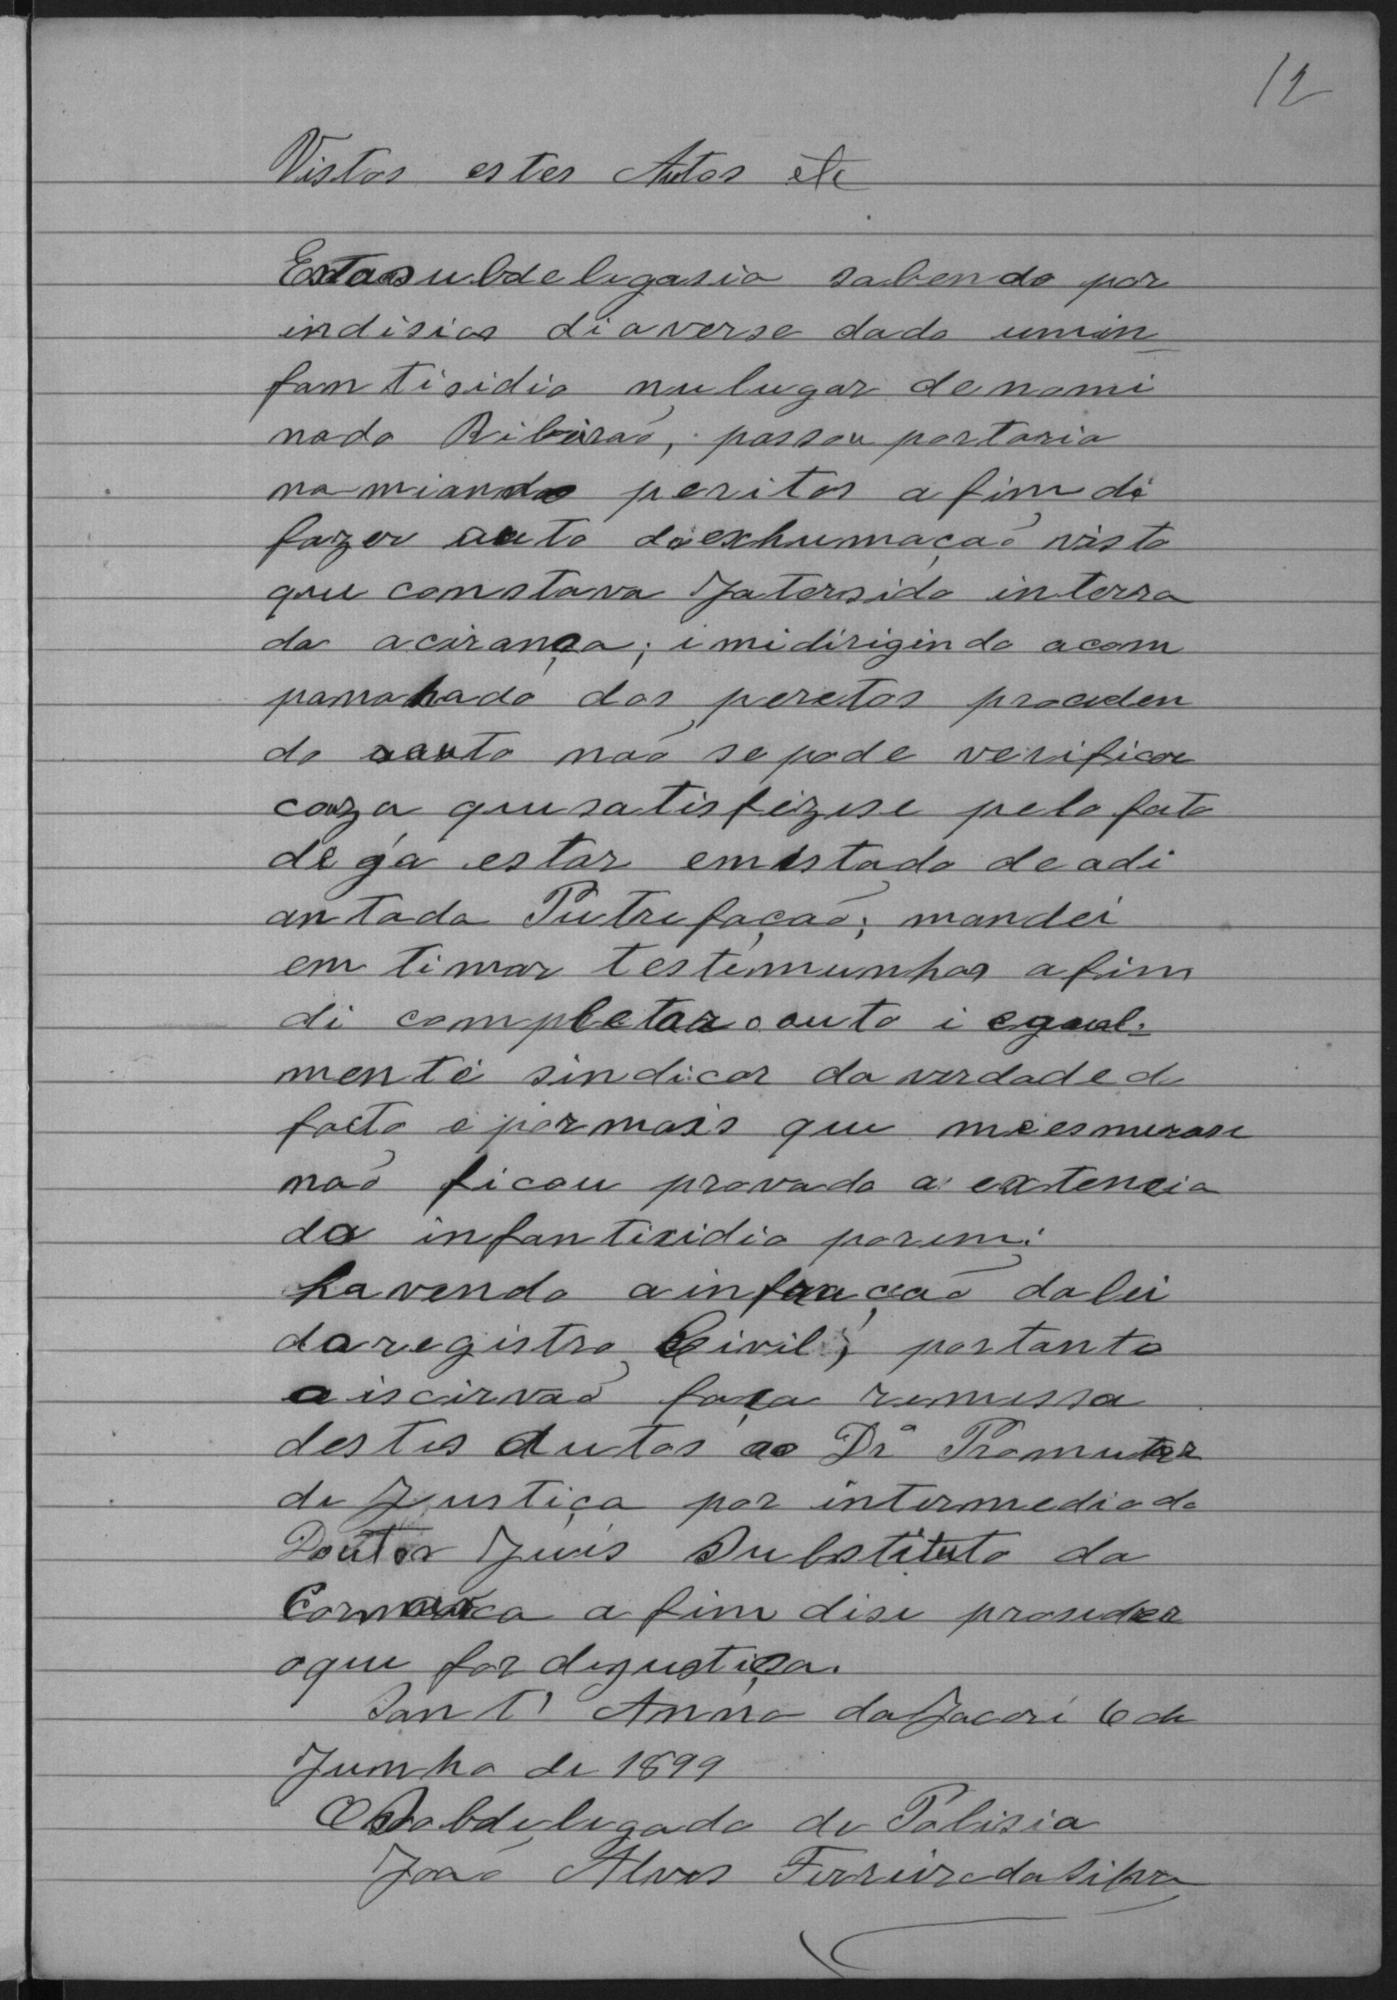 12
Vistos estes Autos etc
Estasubdelegasia sabendo por
indisios diaverse dado umin
fantisidio nulugar denomi
nado Ribeirão, passou portaria
namiando peritos afim di
fazer auto diexhumação visto
que constava Jatersido interra
da acirança; i midirigindo acom
panahado dos peretos proceden
do aauto não sepode verificar
coza quesatisfizese pelo fato
de gá estar emistado deadi
antada Putrefação; mandei
emtimar testemunhas afim
di completar oauto i egual-
mente sindicar da verdaded
facto e pormais que miesmerase
não ficou provado a extencia
do infantisidio porem:
havendo ainfracção dalei
doregistro Civil; portanto
oiscirvão faça remessa
destes Autos ao Dr Promutor
de Justiça por intermediodo
Doutor Juis Substituto da
Comarca afim disi proseder
oque for degustiça.
Sant' Anna doJacaré 6 de
Junho de 1899
OSobdelegado de Polisia
João Alves FerreiradaSilva